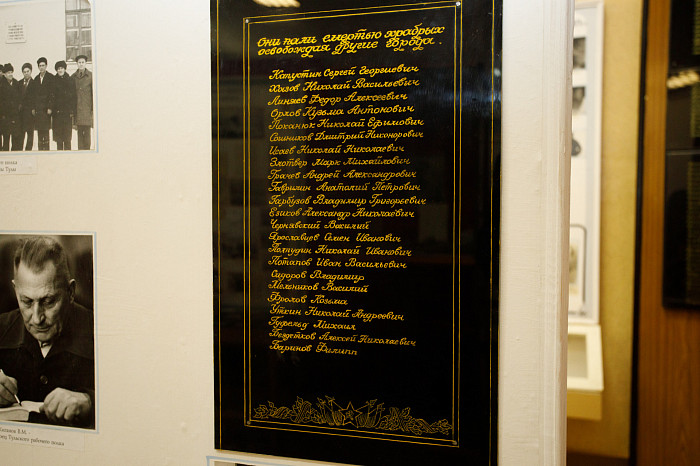 Они пали смертью храбрых
освобождая другие города.
Капустин Сергей Георгиевич
Хохлов Николай Васильевич
Линяев Федор Алексеевич
Орлов Кузьма Антонович
Поканюк Николай Ефимович
Сошников Дмитрий Никонорович
Исаев Николай Николаевич
Злотвер Марк Михайлович
Грачев Андрей Александрович
Гаврилин Анатолий Петрович
Гарбузов Владимир Григорьевич
Езиков Александр Николаевич
Чернявский Василий
Ярославцев Семен Иванович
Полпудин Николай Иванович
Потапов Иван Васильевич
Сидоров Владимир
Мельников Василий
Фролов Козьма
Уткин Николай Андреевич
Михаил
Бездетков Алексей Николаевич
Баринов Филипп
Тульского рабочего полка